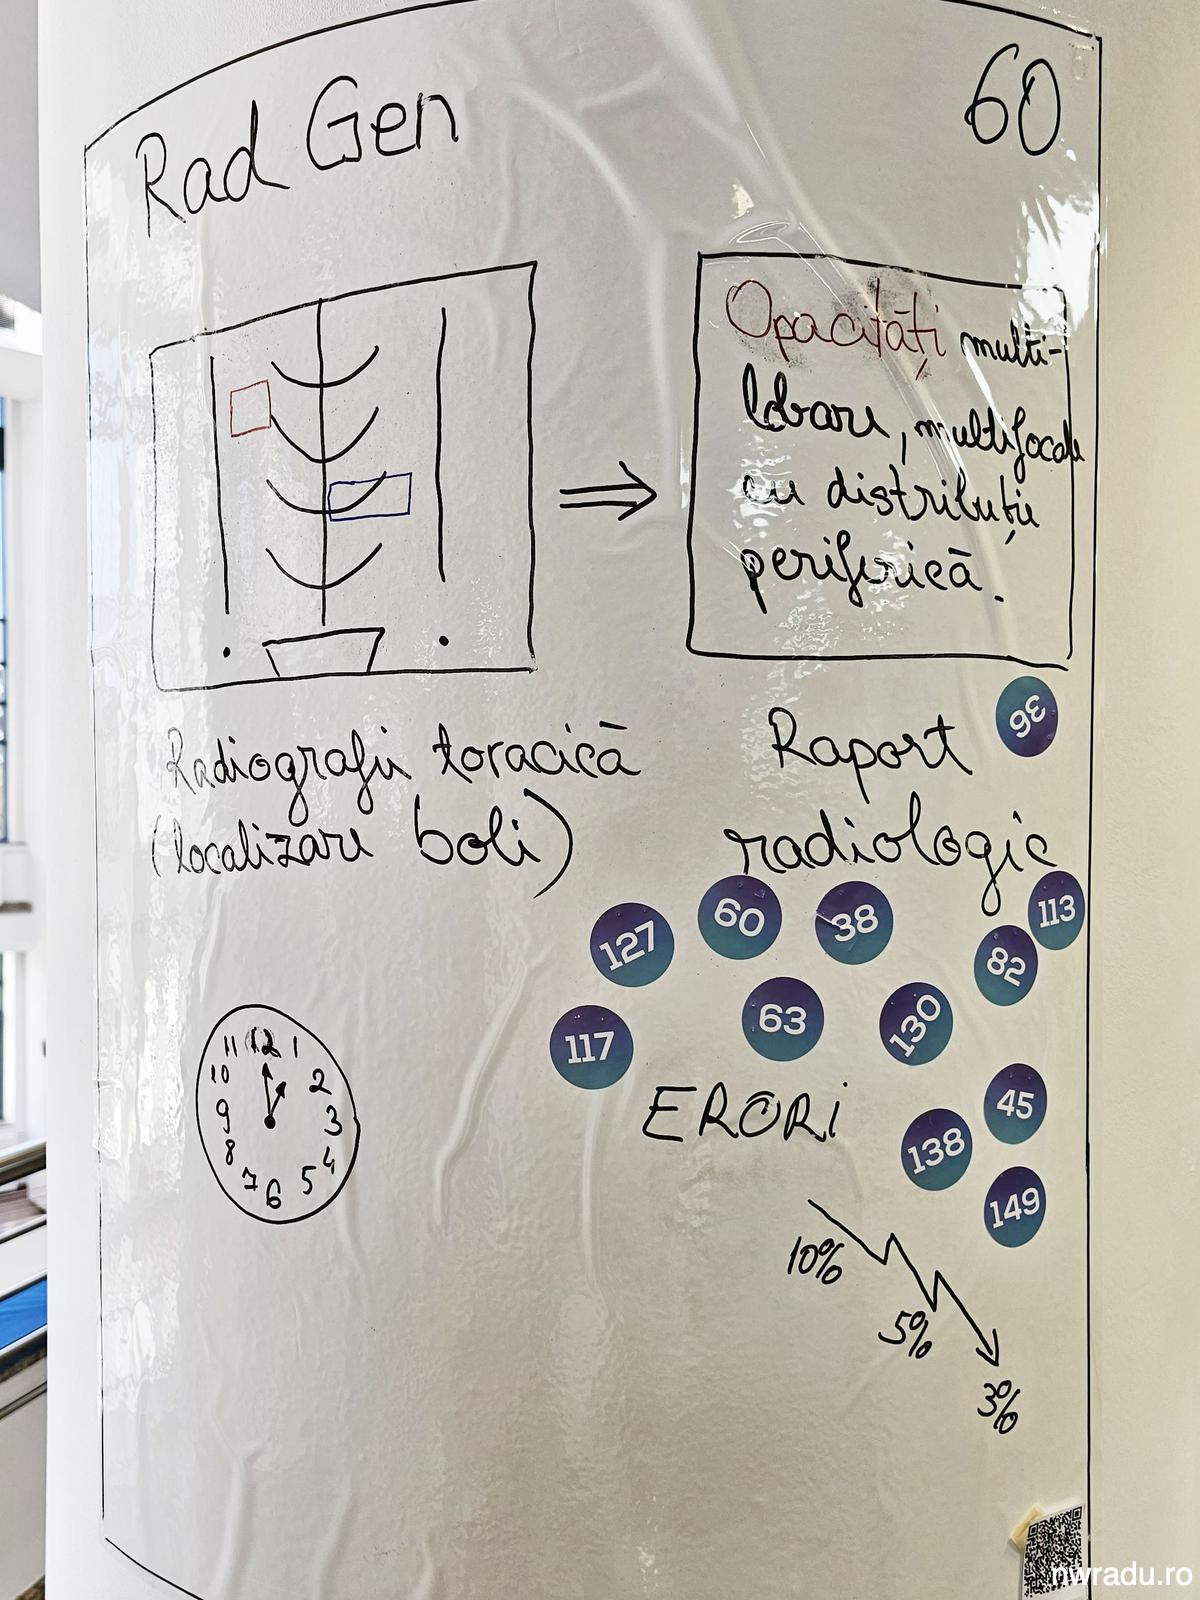 Rad Gen
60
Opacități multi-
lobare, multifocale
cu distribuție
periferică.
Radiografii toracică
(localizare boli)
Raport
radiologic
36
127
60
38
113
82
117
63
130
45
138
149
11 12 1
10 2
9 3
8 4
7 6 5
ERORI
10%
5%
3%
nwradu.ro